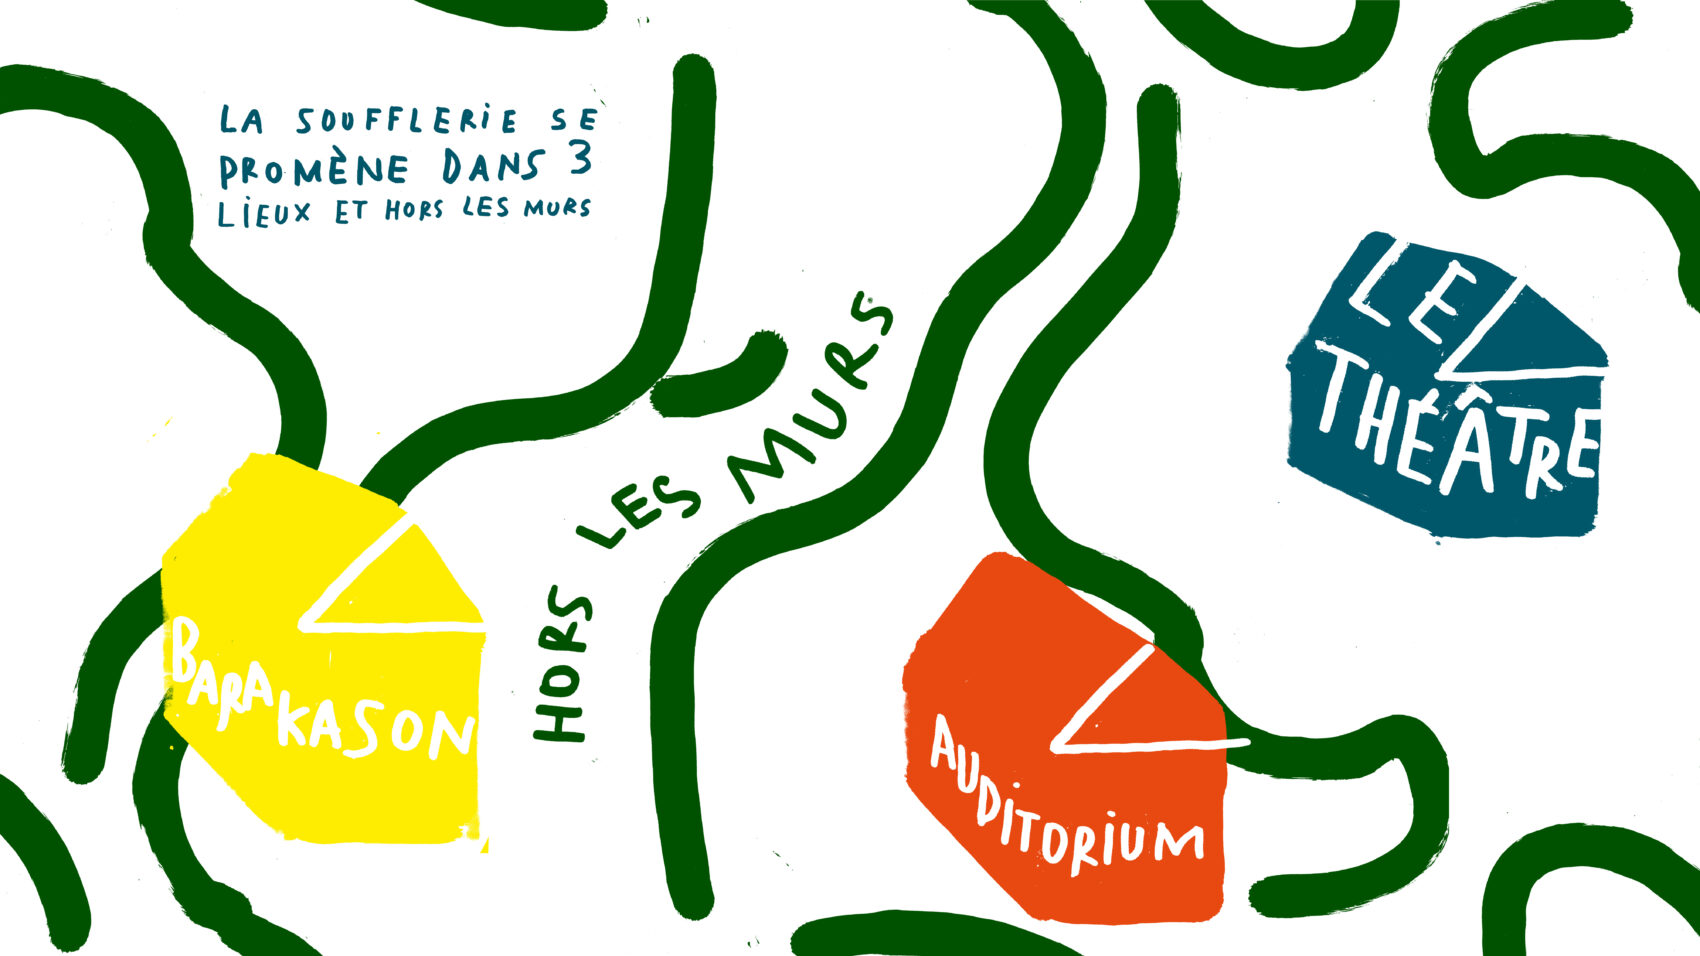 LA SOUFFLERiE SE
PROMÈNE DANS 3
LiEUX ET HORS LES MURS
HORS LES MURS
LE
THÉÂTRE
BARAKASON
AUDiTORiUM